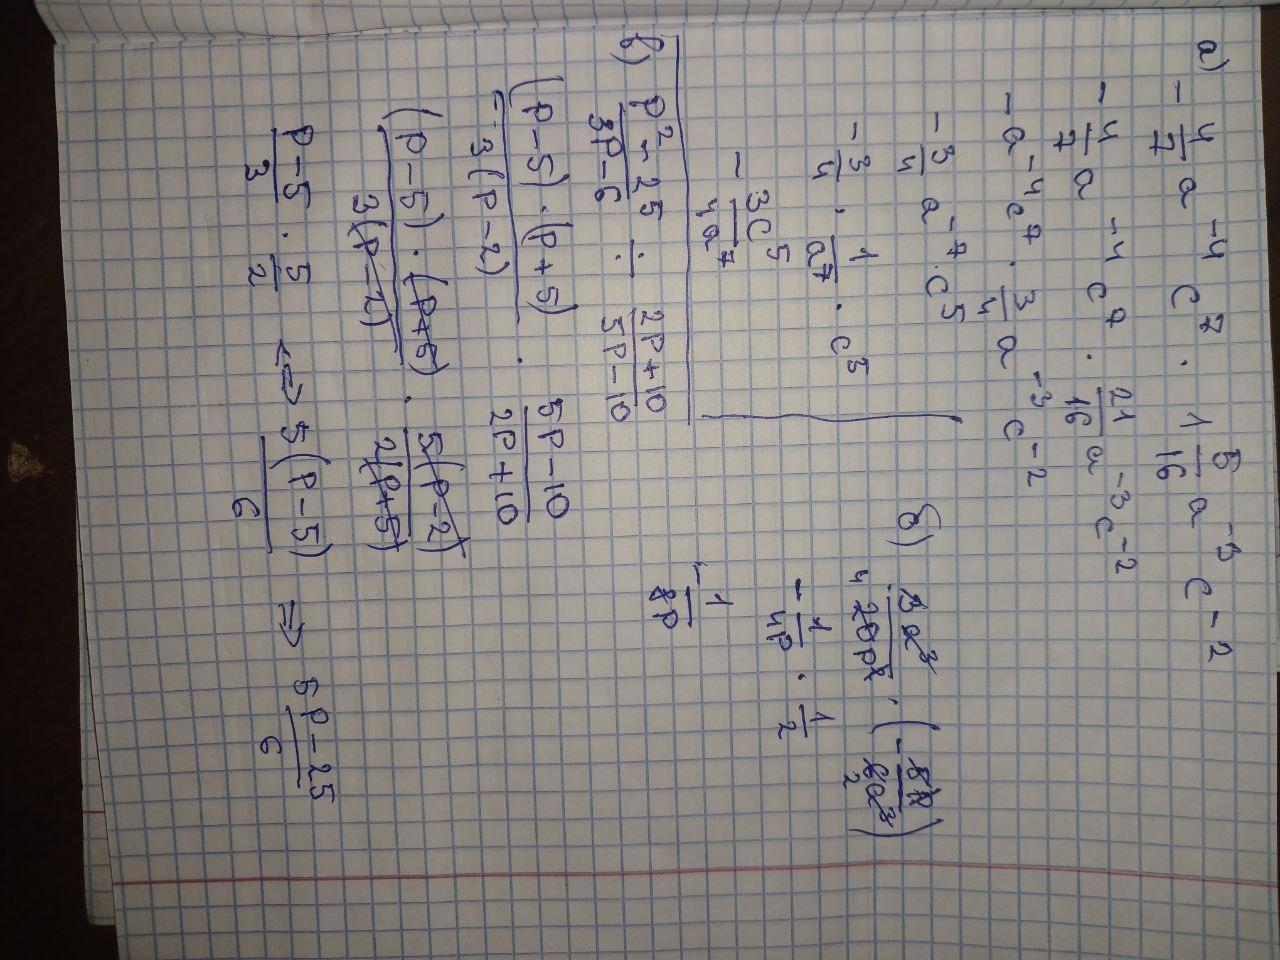 а) -4/7 a^-4 c^7 · 1 5/16 a^-3 c^-2
-4/7 a^-4 c^7 · 21/16 a^-3 c^-2
-a^-4 c^7 · 3/4 a^-3 c^-2
-3/4 a^-7 · c^5
-3/4 · 1/a^7 · c^5
- 3c^5/4a^7
б) 3a^3/20p^2 · (-5p/6a^3)
4 2
-1/4p · 1/2
-1/8p
в) p^2-25/3p-6 : 2p+10/5p-10
= (p-5)·(p+5)/3(p-2) · 5p-10/2p+10
(p-5)·(p+5)/3(p-2) · 5(p-2)/2(p+5)
p-5/3 · 5/2 <=> 5(p-5)/6 => 5p-25/6